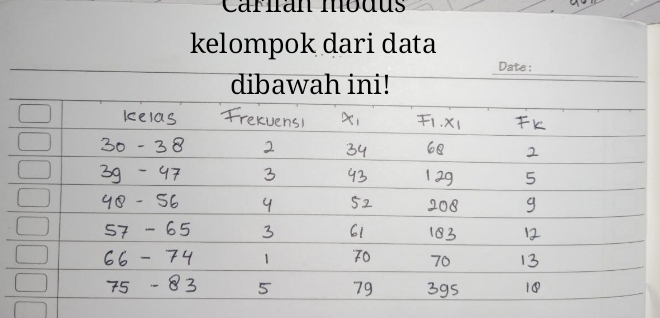 Carilah modus
kelompok dari data
dibawah ini!
Date:
Kelas Frekuensi X1 F1.X1 Fk
30 - 38 2 34 68 2
39 - 47 3 43 129 5
48 - 56 4 52 208 9
57 - 65 3 61 183 12
66 - 74 1 70 70 13
75 - 83 5 79 395 18